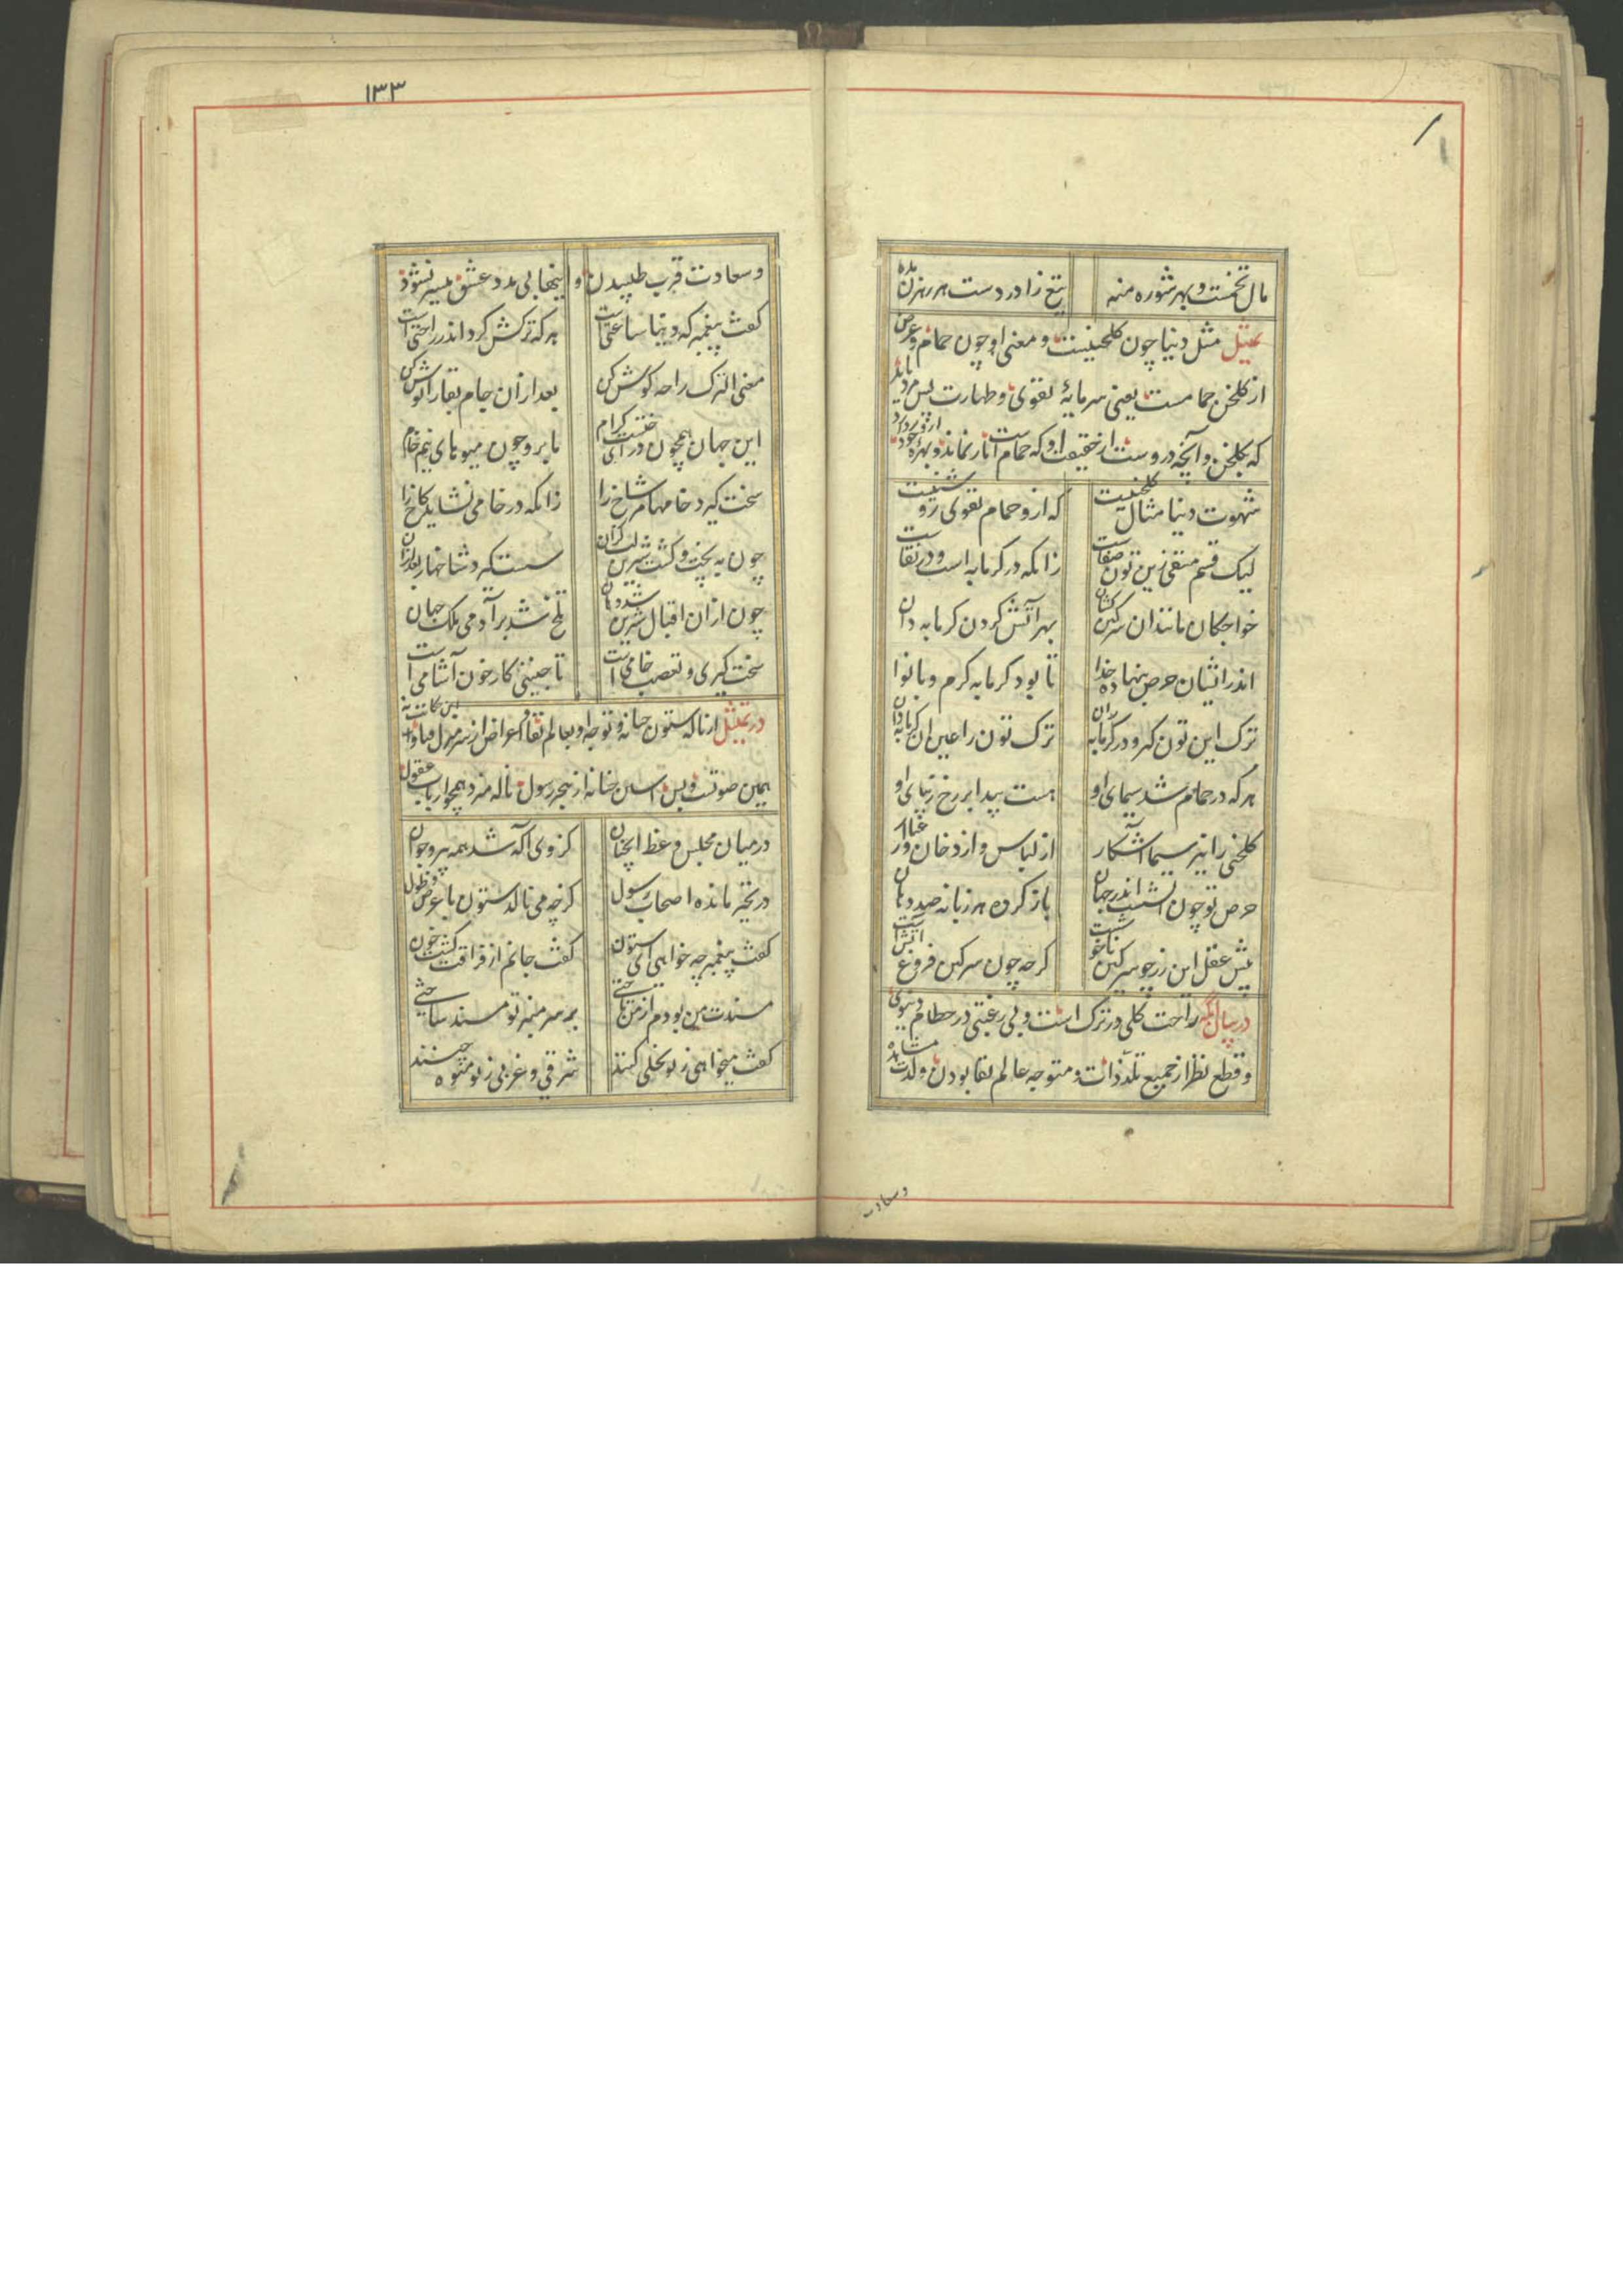 مال تخمست و بهر شوره منه
تیغ را در دست هر رهزن مده
تمثیل مثل دنیا چون گلخنیست و معنی او چون حمام و غرض
از گلخن حمامست یعنی سرمایهٔ تقوی و طهارت پس مرد باید
که گلخن و آنچه دروست از حقیقت او که حمام است
شهوت دنیا مثال گلخنیست
که ازو حمام تقوی روشنیست
لیک قسم متقی زین تون صفاست
زانکه در گرمابه است و در نقاست
خواجگان مانند آن سرگین کشان
بهر آتش کردن گرمابه دان
اندر ایشان حرص بنهاده خدا
تا بود گرمابه گرم و با نوا
ترک این تون گیر و در گرمابه ران
ترک تون را عین آن گرمابه دان
هر که در حمام شد سیمای او
هست پیدا بر رخ زیبای او
گلخنی را نیز سیما آشکار
از لباس و از دخان و از غبار
حرص تو چون آتشست اندر جهان
باز کرده هر زبانه صد دهان
پیش عقل این زر چو سرگین ناخوشست
گرچه چون سرگین فروغ آتشست
در بیان آنکه راحت کلی در ترک است و بی رغبتی در حطام دنیوی
و قطع نظر از جمیع تلذذات و متوجه عالم بقا بودن و لذت مشاهده
وسعادت
١٣٣
و سعادت قرب طلبیدن و اینها بی مدد عشق میسر نشود
گفت پیغمبر که دنیا ساعتیست
هر که ترکش کرد اندر راحتی است
معنی الترک راحه گوش کن
بعد از آن جام بقا را نوش کن
این جهان همچون درختست ای کرام
ما برو چون میوه‌های نیم خام
سخت گیرد خامها مر شاخ را
زانکه در خامی نشاید کاخ را
چون به پخت و گشت شیرین لب گزان
سست گیرد شاخها را بعد از آن
چون از آن اقبال شیرین شد دهان
تلخ شد بر آدمی ملک جهان
سخت گیری و تعصب خامی است
تا جنینی کار خون آشامی است
در تمثیل از ناله ستون حنانه و توجه او بعالم بقا و اعراض از سر منزل فنا و این حکایت نه
همین صوتست و بس استن حنانه از هجر رسول ناله میزد همچو ارباب عقول
در میان مجلس وعظ آنچنان
کز وی آگه شد همه پیر و جوان
در تحیر مانده اصحاب رسول
کز چه می نالد ستون با عرض و طول
گفت پیغمبر چه خواهی ای ستون
گفت جانم از فراقت گشت خون
مسندت من بودم از من تاختی
بر سر منبر تو مسند ساختی
گفت میخواهی ترا نخلی کنند
شرقی و غربی ز تو میوه چنند